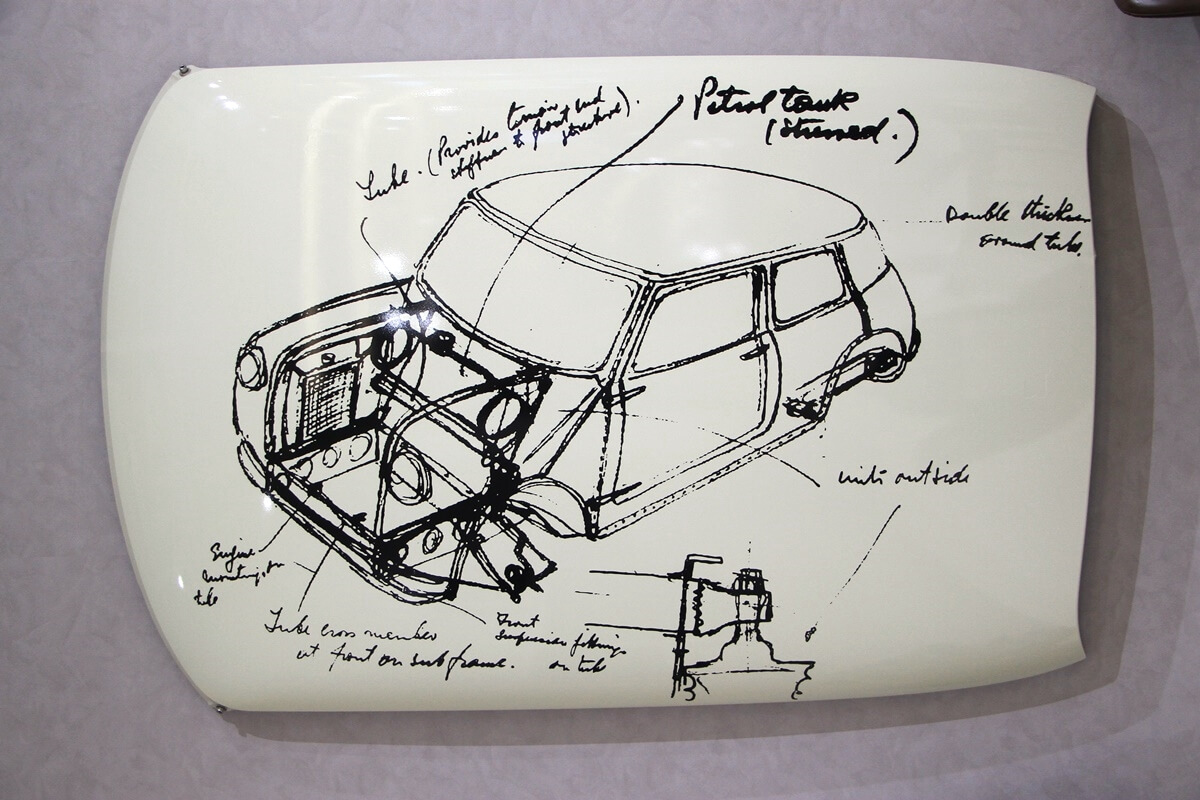 Petrol tank
(Stressed.)
Tube. (Provides torsion and
stiffness to front end
structure).
Double thickness
around tube.
units outside
Engine
mounting on
tube
Tube cross member
at front on subframe.
Front
Suspension fittings
on tube